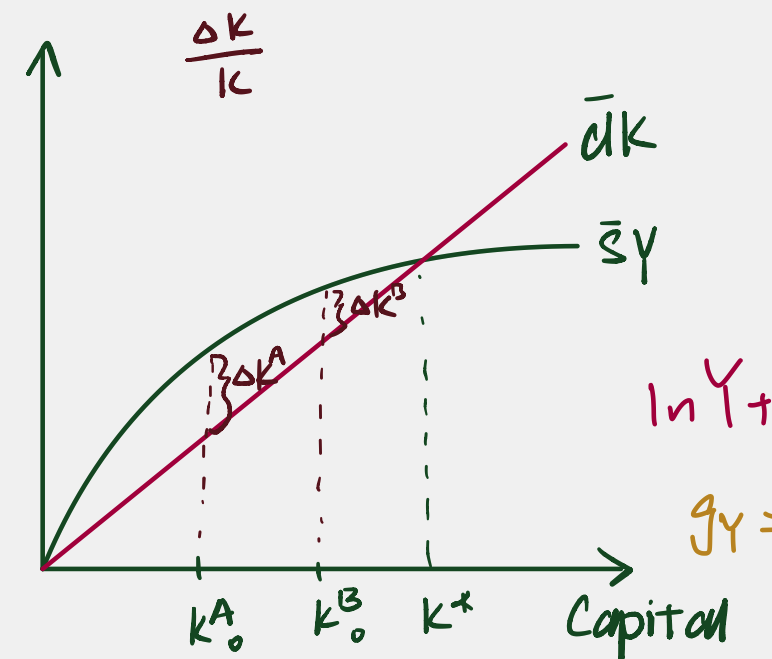 ΔK
K
d̄K
s̄Y
ΔK^B
ΔK^A
ln Y +
g_Y =
K₀^A K₀^B K* Capital